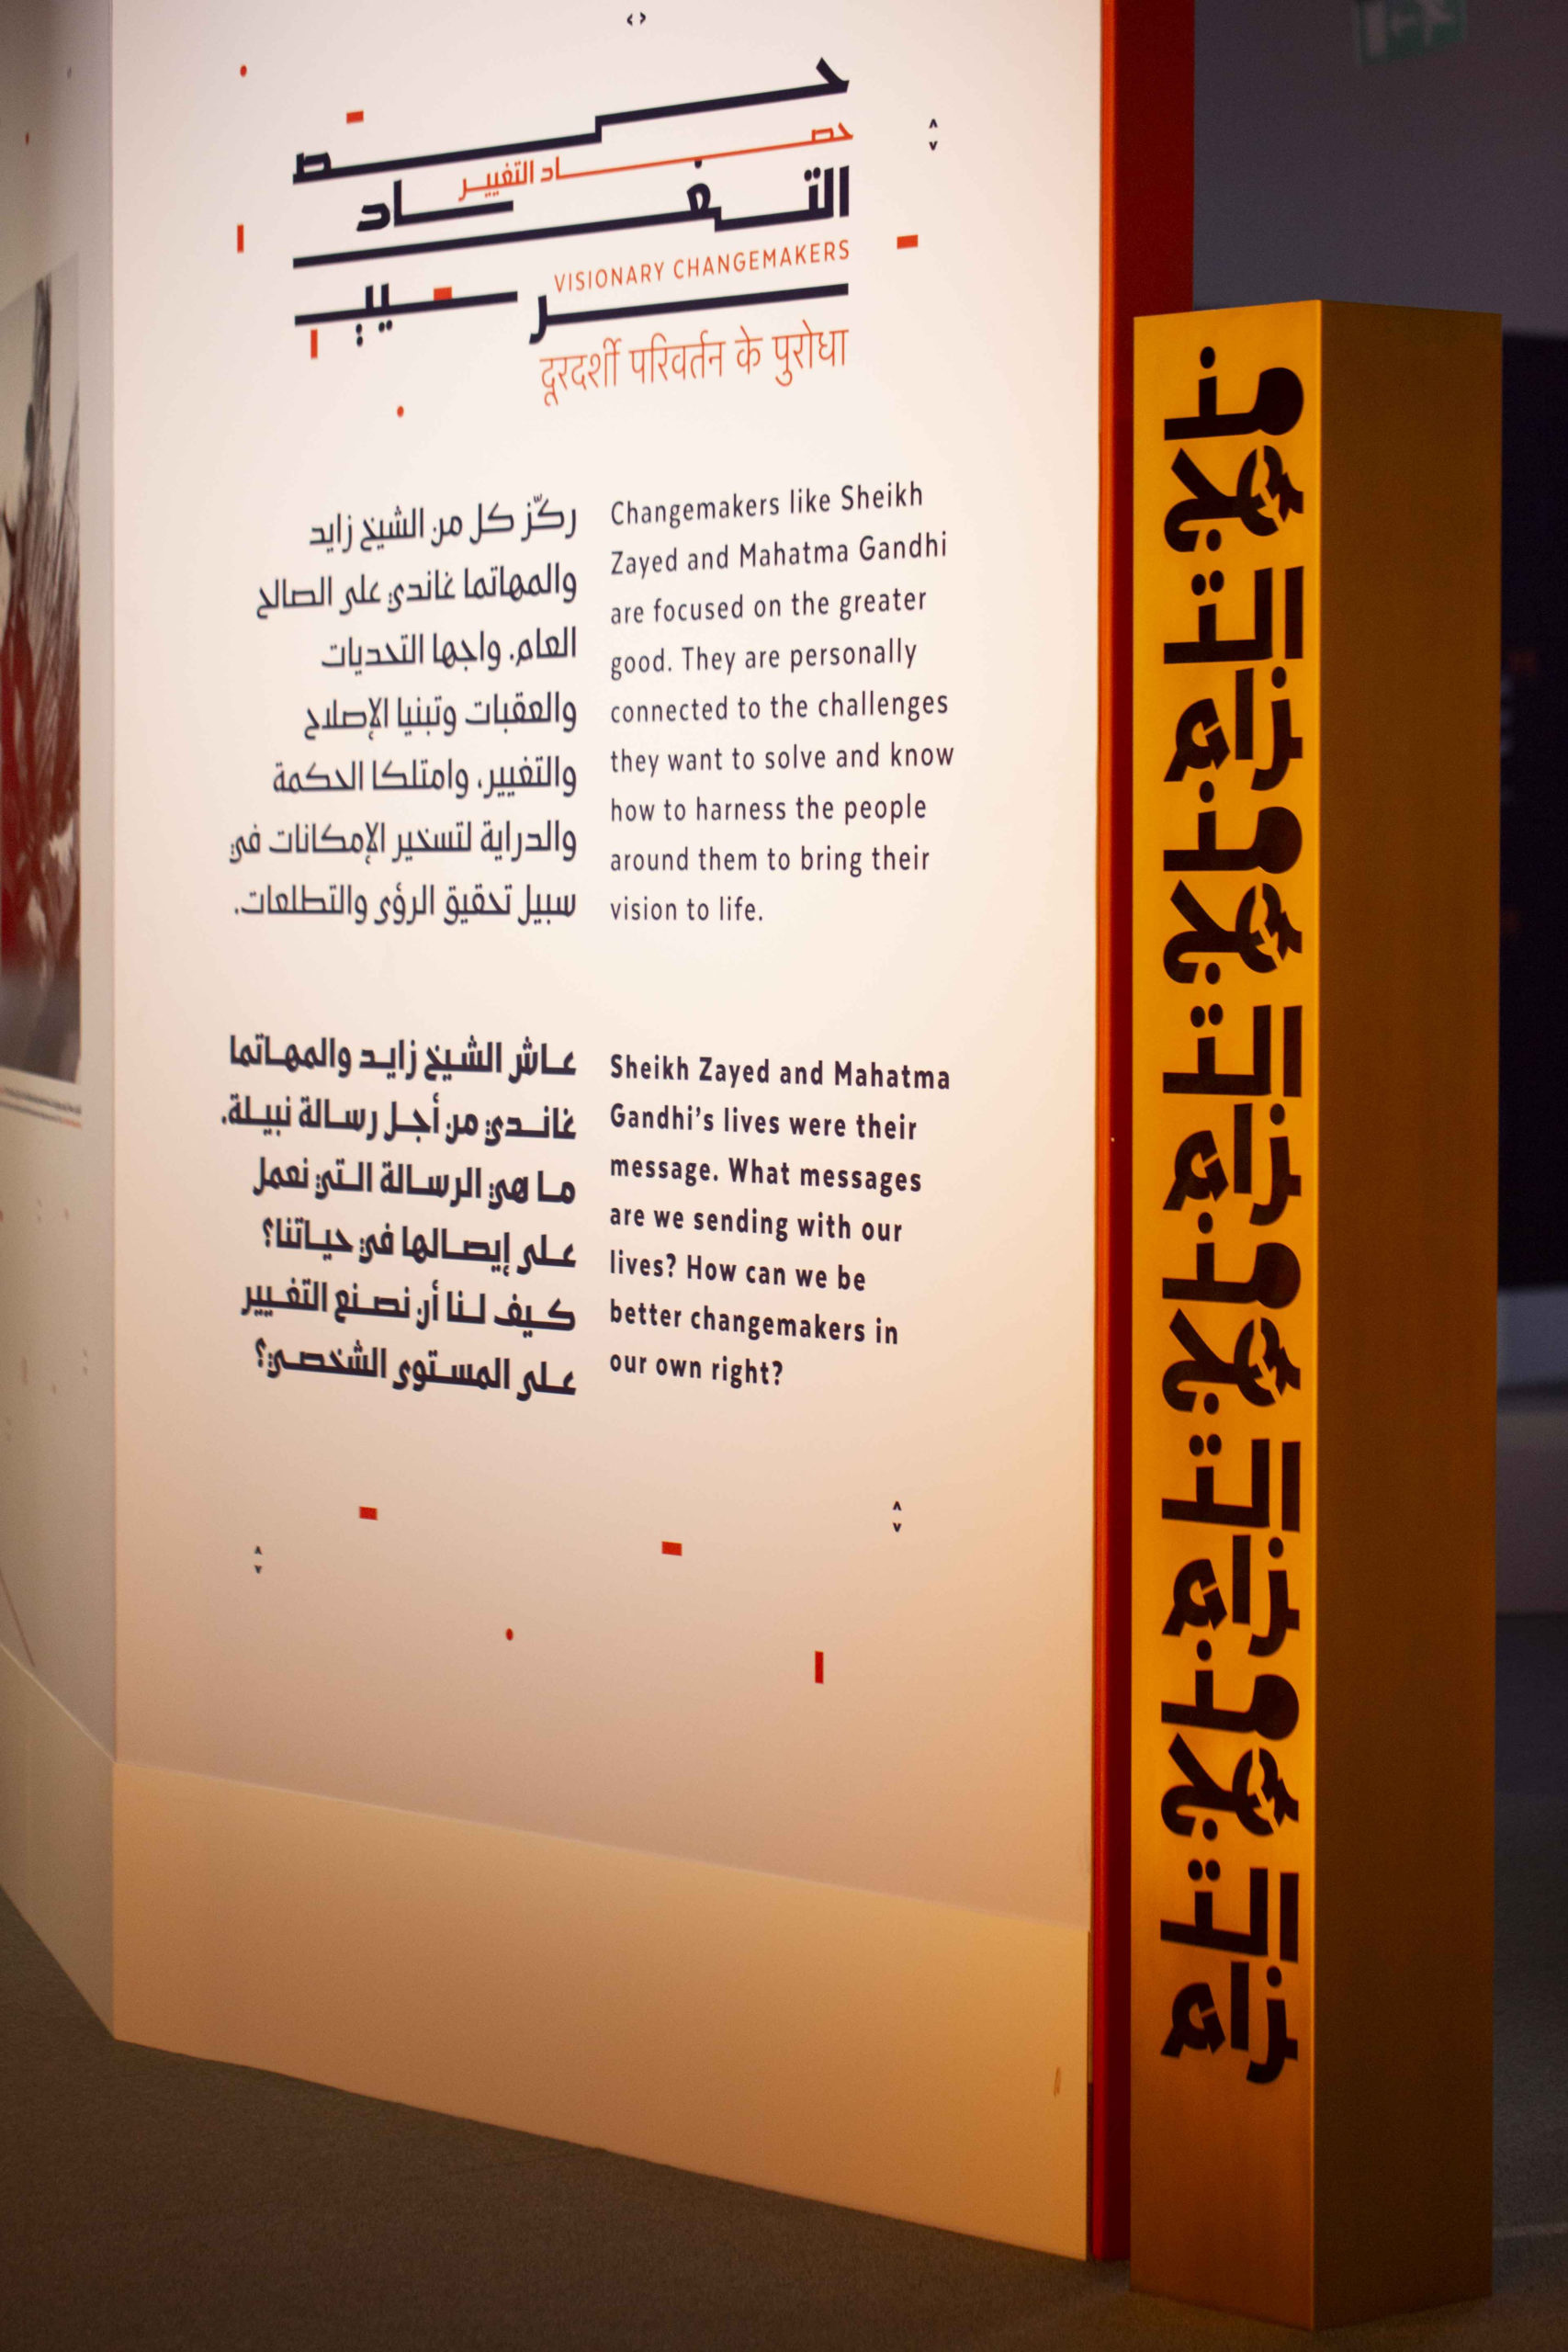 حصاد
حصاد التغيير
التغيير
VISIONARY CHANGEMAKERS
दूरदर्शी परिवर्तन के पुरोधा
ركّز كل من الشيخ زايد
والمهاتما غاندي على الصالح
العام. واجها التحديات
والعقبات وتبنيا الإصلاح
والتغيير، وامتلكا الحكمة
والدراية لتسخير الإمكانات في
سبيل تحقيق الرؤى والتطلعات.
Changemakers like Sheikh
Zayed and Mahatma Gandhi
are focused on the greater
good. They are personally
connected to the challenges
they want to solve and know
how to harness the people
around them to bring their
vision to life.
عاش الشيخ زايد والمهاتما
غاندي من أجل رسالة نبيلة.
ما هي الرسالة التي نعمل
على إيصالها في حياتنا؟
كيف لنا أن نصنع التغيير
على المستوى الشخصي؟
Sheikh Zayed and Mahatma
Gandhi's lives were their
message. What messages
are we sending with our
lives? How can we be
better changemakers in
our own right?